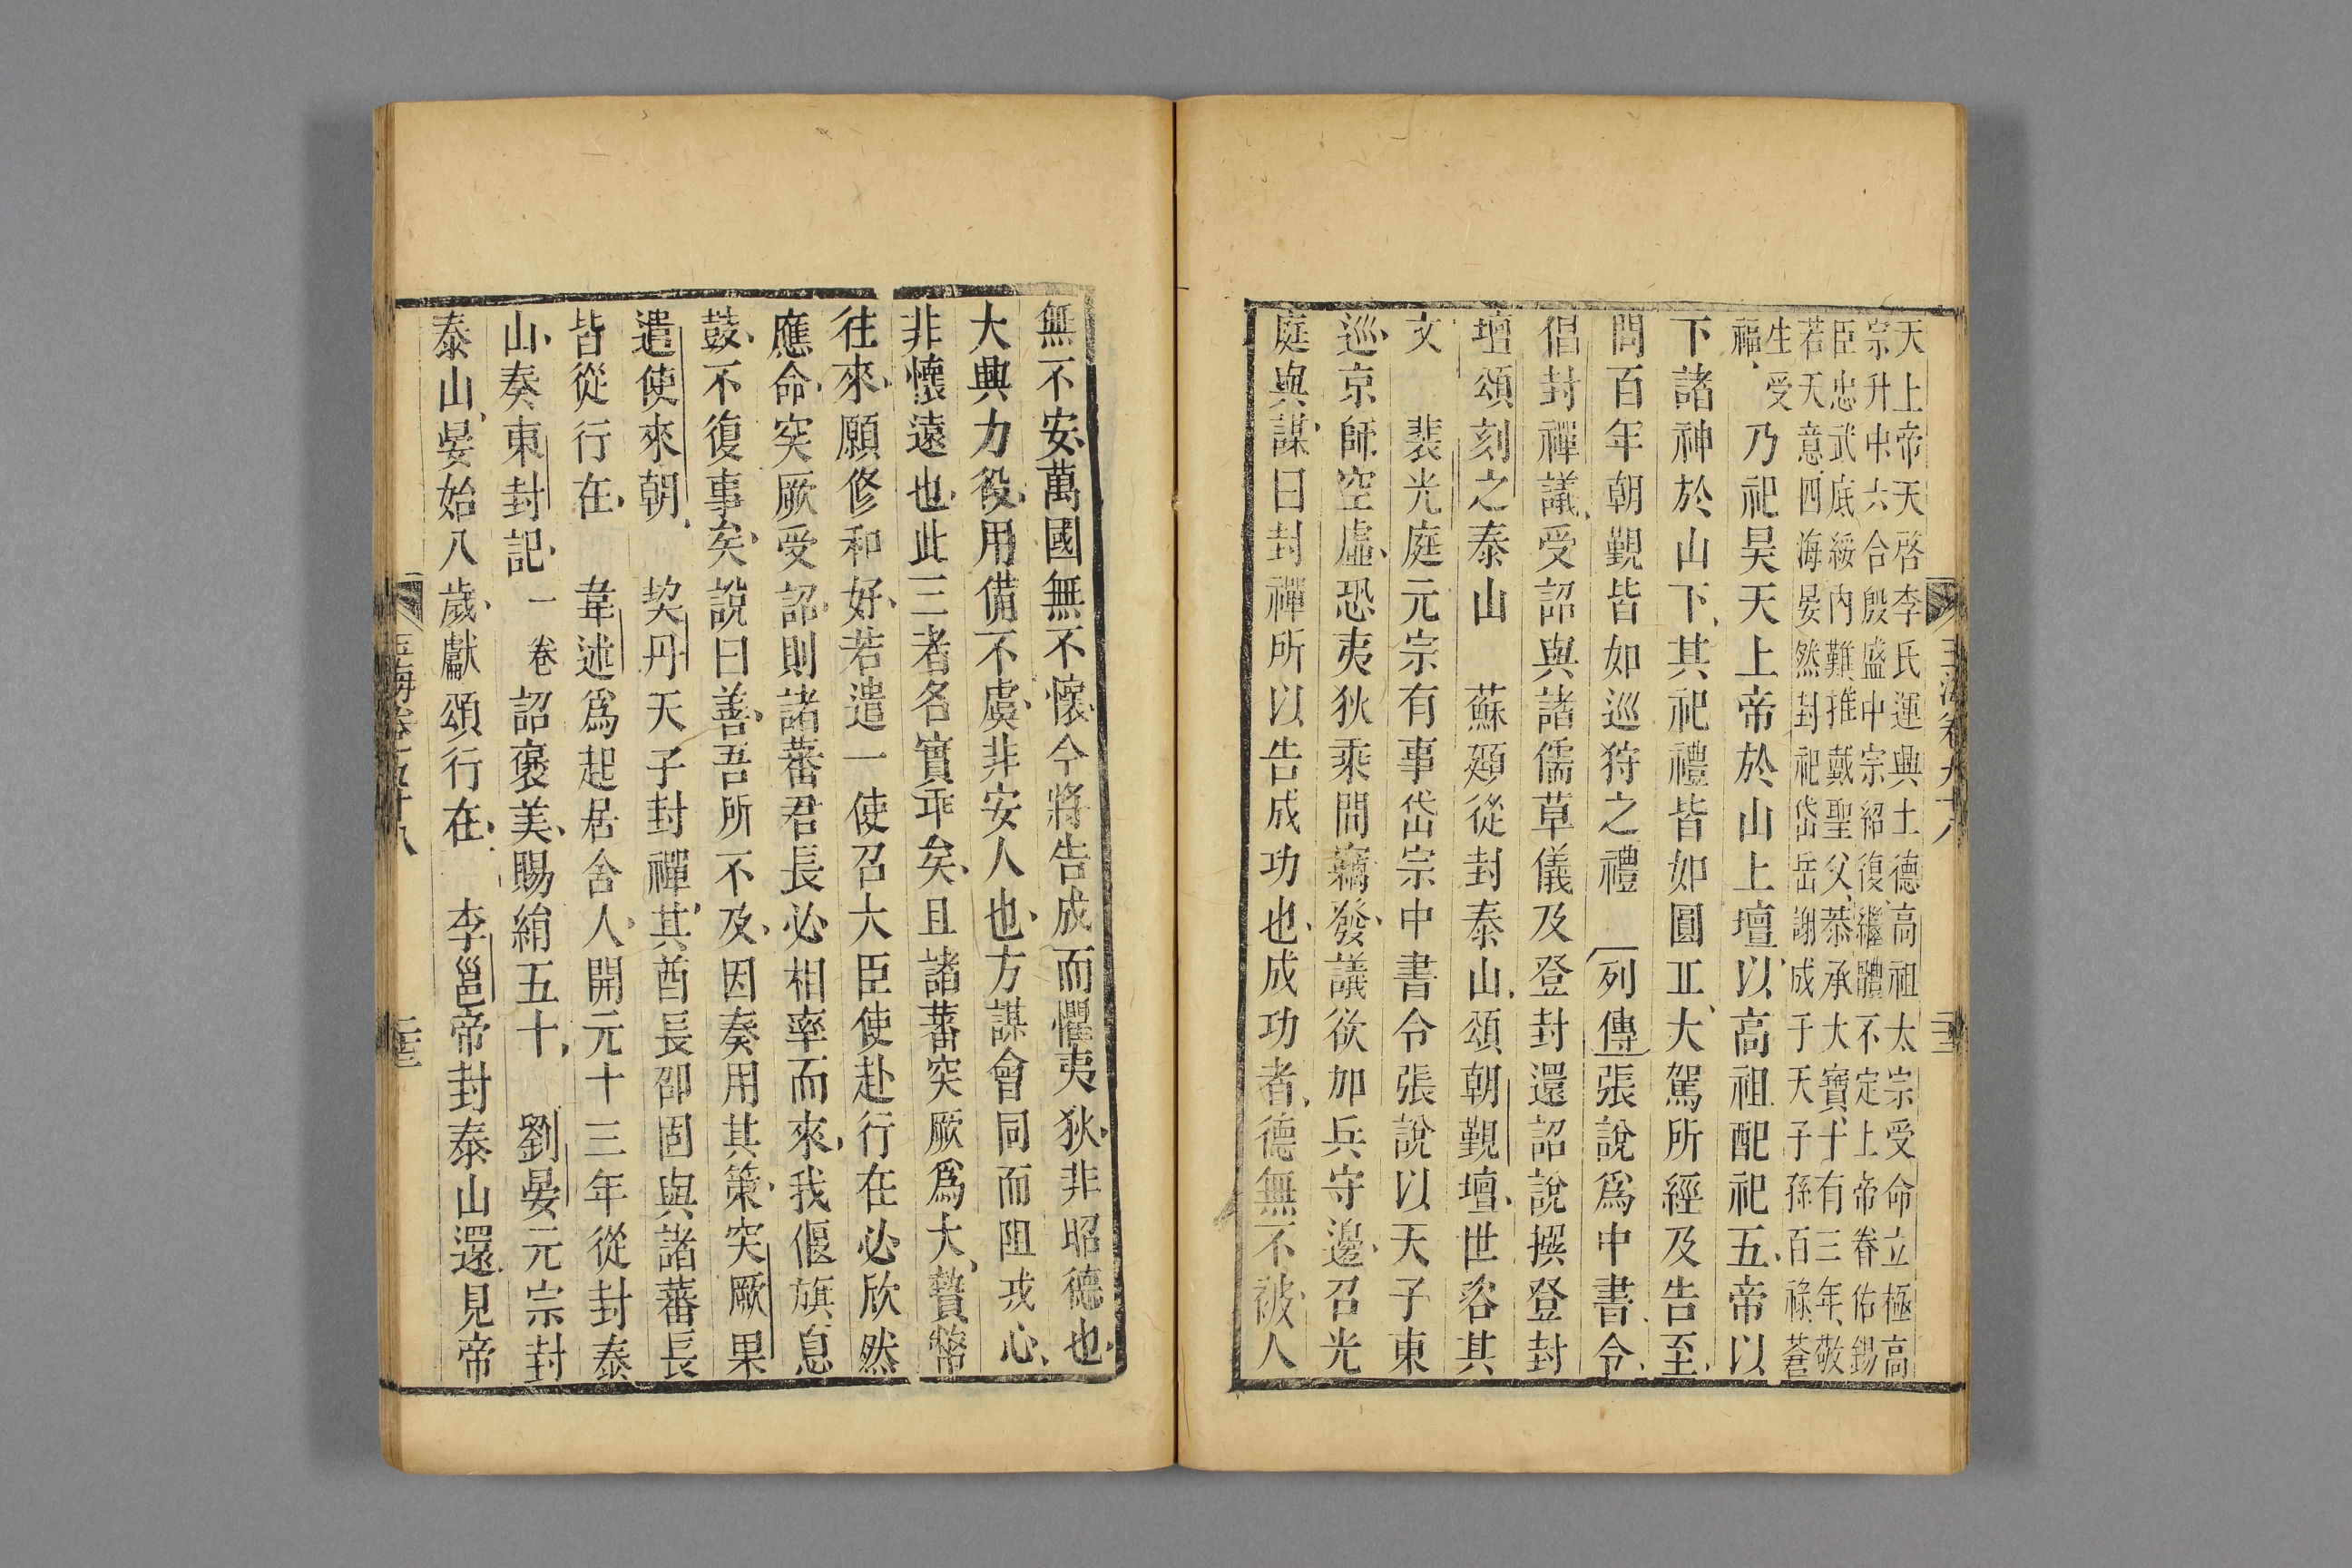 天上帝天啓李氏運興土德高祖太宗受命立極高
宗升中六合殷盛中宗紹復繼體不定上帝眷佑錫
臣忠武底綏內難推戴聖父恭承大寶十有三年敬
若天意四海晏然封祀岱岳謝成于天子孫百祿蒼
生受
福乃祀昊天上帝於山上壇以高祖配祀五帝以
下諸神於山下其祀禮皆如圓丘大駕所經及告至
問百年朝覲皆如巡狩之禮　列傳張說爲中書令
倡封禪議受詔與諸儒草儀及登封還詔說撰登封
壇頌刻之泰山　蘇頲從封泰山頌朝覲壇世咨其
文　裴光庭元宗有事岱宗中書令張說以天子東
巡京師空虛恐夷狄乘間竊發議欲加兵守邊召光
庭與謀曰封禪所以告成功也成功者德無不被人
無不安萬國無不懷今將告成而懼夷狄非昭德也
大興力役用備不虞非安人也方謀會同而阻戎心
非懷遠也此三者名實乖矣且諸蕃突厥爲大贄幣
往來願修和好若遣一使召大臣使赴行在必欣然
應命突厥受詔則諸蕃君長必相率而來我偃旗息
鼓不復事矣說曰善吾所不及因奏用其策突厥果
遣使來朝　契丹天子封禪其酋長邵固與諸蕃長
皆從行在　韋述爲起居舍人開元十三年從封泰
山奏東封記一卷詔褒美賜絹五十　劉晏元宗封
泰山晏始八歲獻頌行在　李邕帝封泰山還見帝